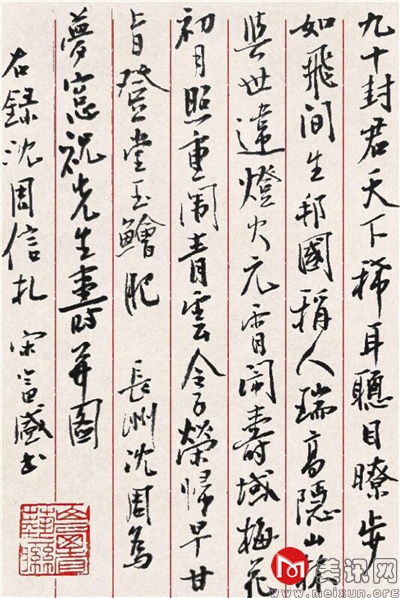 九十封君天下稀耳聰目瞭步
如飛間生邦國稱人瑞高隱山林
與世違燈火元宵開壽域梅花
初月照重闈青雲令子榮歸早甘
旨登堂玉鱠肥 長洲沈周爲
夢窓祝先生壽并圖
右錄沈周信札 宋富盛书
美讯网
www.meixun.org